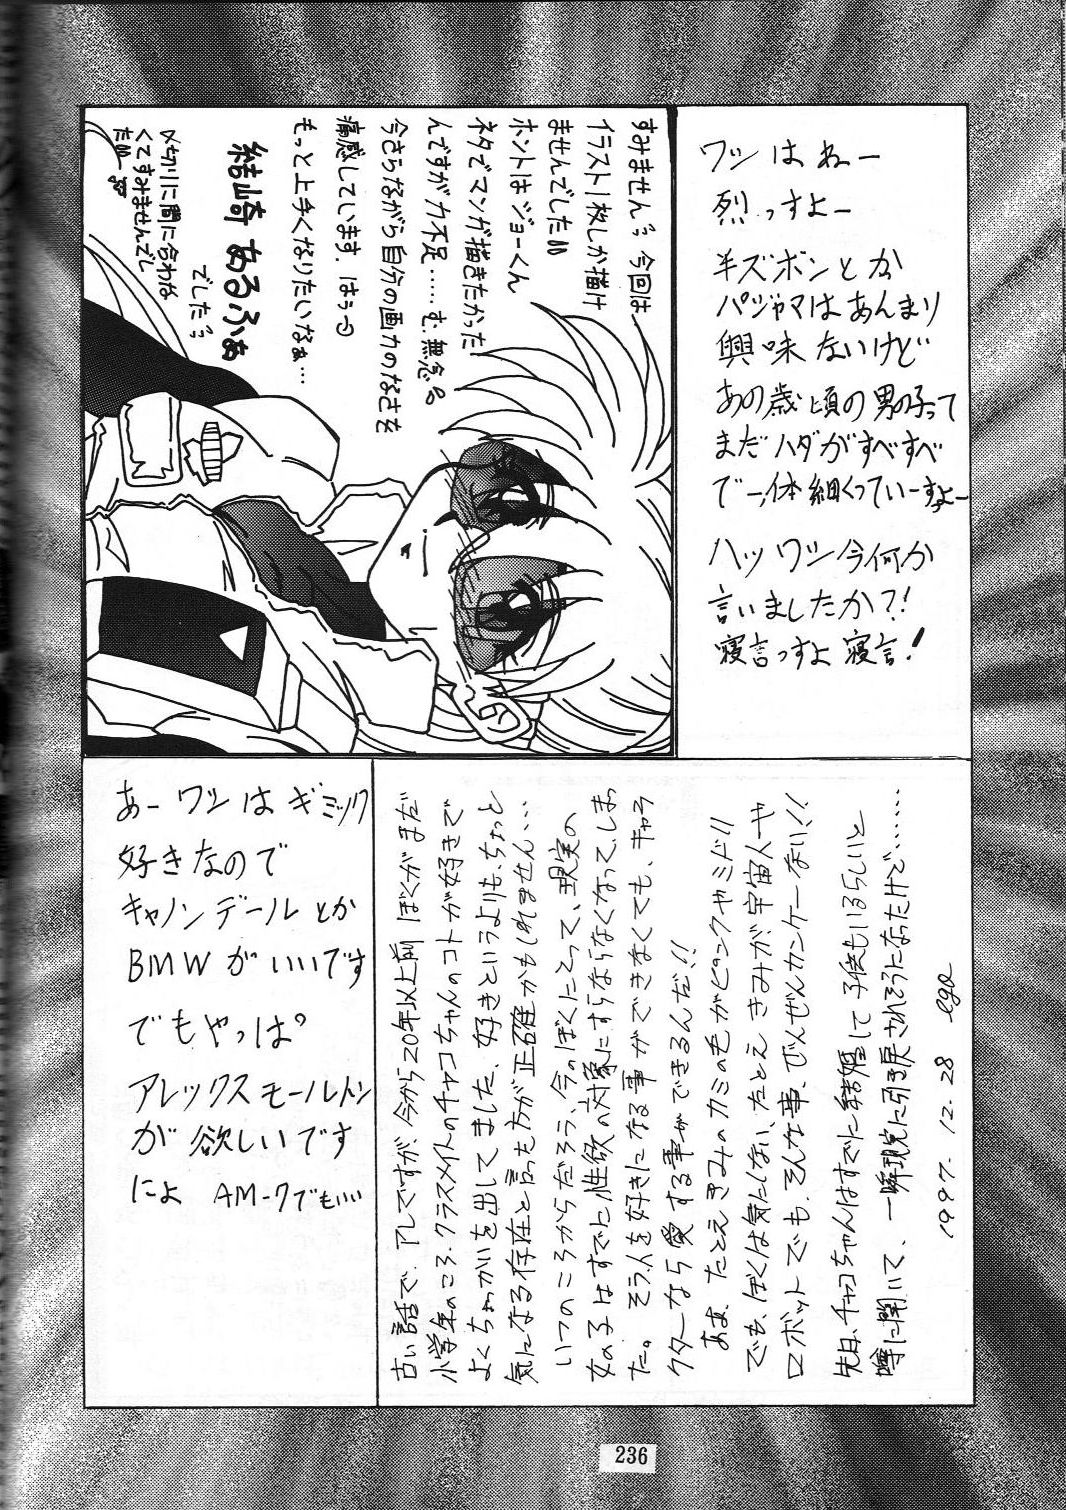 すみません 今回は
イラスト1枚しか描け
ませんでした
ホントはジョーくん
ネタでマンガ描きたかった
んですが力不足……む、無念
今さらながら自分の画力のなさを
痛感しています。はぅ
もっと上手くなりたいなぁ…
結崎 あるふぁ
でしたぅ
〆切りに間に合わな
くてすみませんでし
た
あー ワシは ギミック
好きなので
キャノンデールとか
BMWがいいです
でもやっぱ。
アレックスモールトン
が欲しいです
によ AM-7でもいい
古い話で、アレですが、今から20年以上前 ぼくがまだ
小学生のころ、クラスメイトのチャコちゃんのコトが好きで
よくちょっかいを出してました、好きというよりもちょっと
気になる存在と言った方が正確かもしれません…
いつのころからだろう、今のぼくにとって、現実の
女の子はすでに性欲の対象にすらならなくなってしまっ
た。そう人を好きになる事ができなくても、キャラ
クターなら愛する事ができるんだ!!
ああ、たとえきみのカミの毛がピンクやミドリ
でも、ぼくは気にしない、たとえきみが、宇宙人や
ロボットでも、そんな事、ぜんぜんカンケーない!!
先日、チャコちゃんはすでに結婚して子供もいるらしいと
噂に聞いて、一瞬現実に引き戻されそうになったけど……
1997.12.28 ego
236